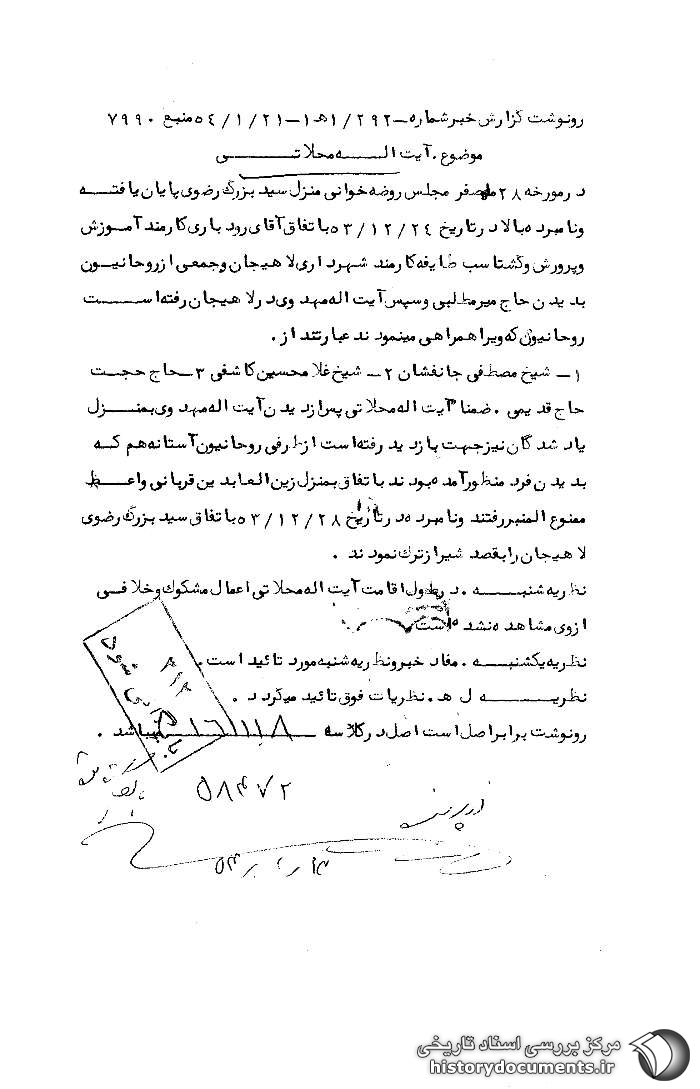 رونوشت گزارش خبر شماره – ۲۹۲ / ۱ه‍ ۱ – ۲۱ / ۱ / ۵٤ منبع ۷۹۹۰
موضوع . آیت الــــه محلاتــــی
در مورخه ۲۸ ماه صفر مجلس روضه خوانی منزل سید بزرگ رضوی پایان یافتــه
و نامبرده بالا در تاریخ ۲٤ / ۱۲ / ۵۳ با تفاق آقای رود باری کارمند آمــوزش
و پرورش و گشتاسب طایفه کارمند شهرداری لاهیجان و جمعی از روحانیــون
بدیدن حاج میرمطلبی و سپس آیت اله مهدوی در لاهیجان رفته اســـــت
روحانیون که ویرا همراهی مینمودند عبارتند از .
۱ – شیخ مصطفی جانفشان ۲ – شیخ غلامحسین کاشفی ۳ – حاج حجــت
حاج قدیمی . ضمنا آیت اله محلاتی پس از دیدن آیت اله مهدوی بمنـــزل
یاد شدگان نیز جهت بازدید رفته است از طرفی روحانیون آستانه هم کــه
بدیدن فرد منظور آمده بودند با تفاق بمنزل زین العابدین قربانی واعــظ
ممنوع المنبر رفتند و نامبرده در تاریخ ۲۸ / ۱۲ / ۵۳ با تفاق سید بزرگ رضوی
لاهیجان را بقصد شیراز ترک نمودند .
نظریه شنبــــه . در طول اقامت آیت اله محلاتی اعمال مشکوک و خلافــی
از وی مشاهده نشده است
نظریه یکشنبــــه . مفاد خبر و نظریه شنبه مورد تائید است .
نظریــــــه ل ه‍ . نظریات فوق تائید میگردد .
رونوشت برابر اصل است اصل در کلاسه ۱۶۱۱۱۸ میباشد .
۳۱۲
بایگانی شود
۵۸۴۷۲
مرکز بررسی اسناد تاریخی
historydocuments.ir